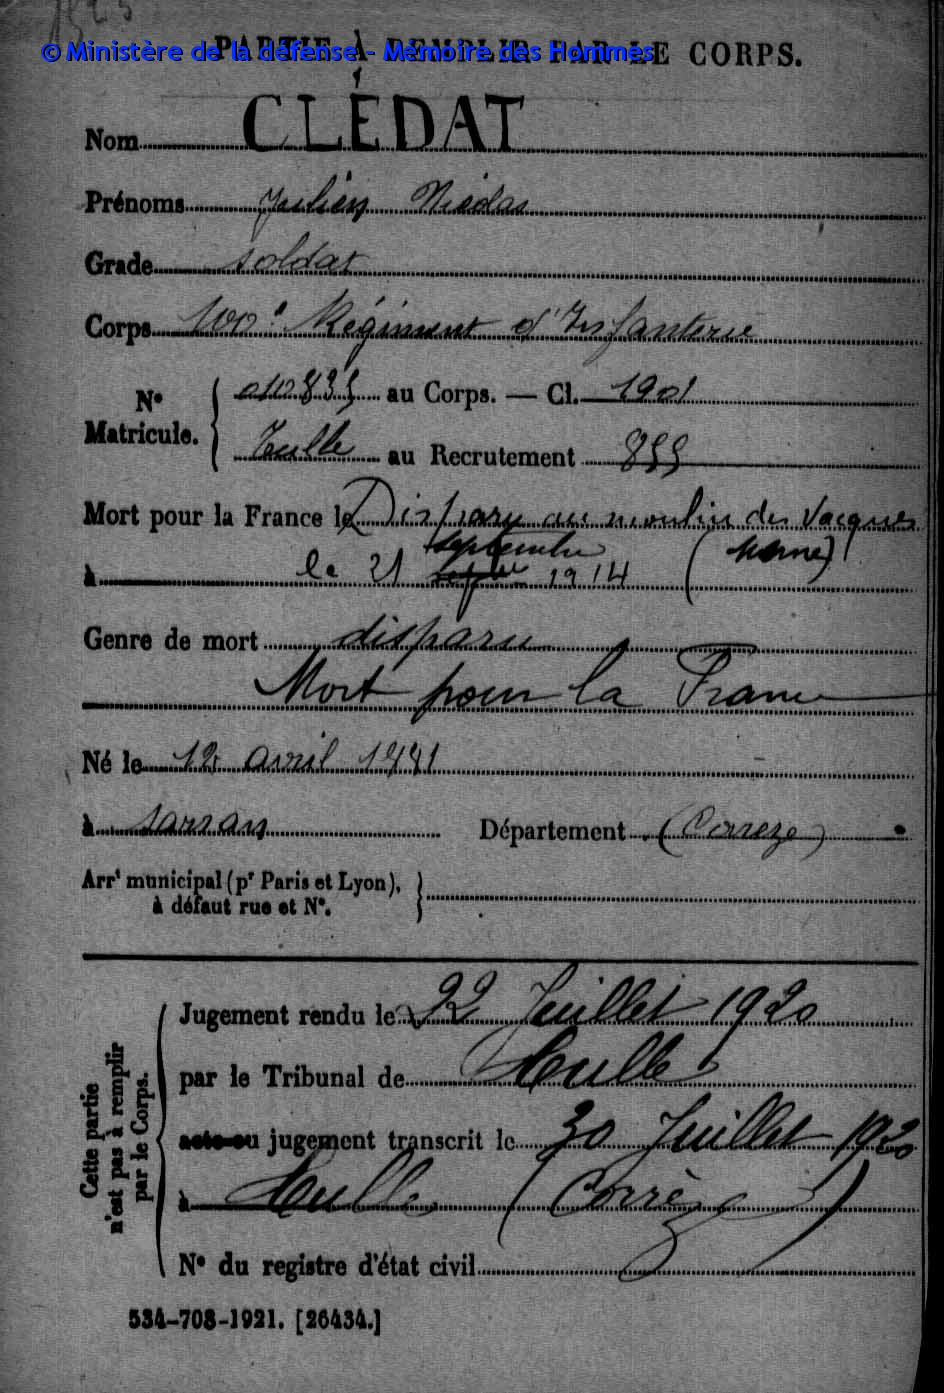 1323
© Ministère de la défense - Mémoire des Hommes
PARTIE À REMPLIR PAR LE CORPS.
Nom CLÉDAT
Prénoms Julien Nicolas
Grade soldat
Corps 100e Régiment d'Infanterie
No Matricule. { 010835 au Corps. — Cl. 1901
Tulle au Recrutement 855
Mort pour la France le Disparu au moulin des Vacques
septembre (Marne)
à le 21 1914
Genre de mort disparu
Mort pour la France
Né le 12 avril 1881
à Sarran Département (Corrèze)
Arrt municipal (pr Paris et Lyon), }
à défaut rue et No.
Cette partie n'est pas à remplir par le Corps.
Jugement rendu le 22 Juillet 1920
par le Tribunal de Tulle
acte ou jugement transcrit le 30 Juillet 1920
à Tulle (Corrèze)
No du registre d'état civil
534-708-1921. [26434.]